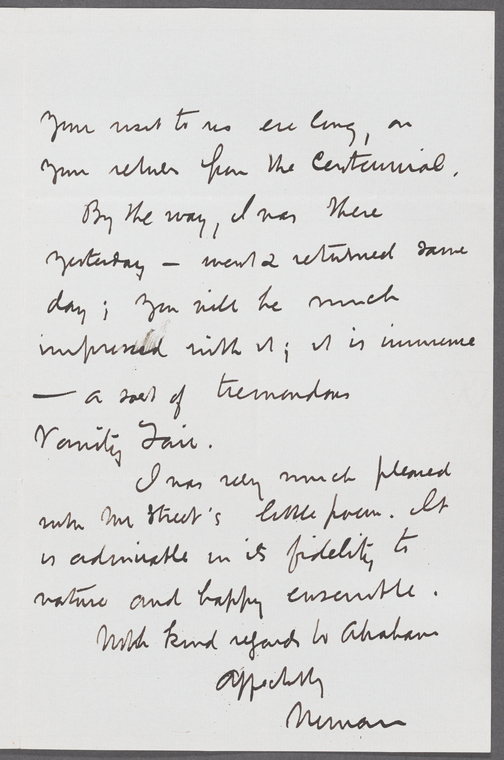 your visit to us ere long, on
your return from the Centennial.
By the way, I was there
yesterday — went & returned same
day; you will be much
impressed with it; it is immense
— a sort of tremendous
Vanity Fair.
I was very much pleased
with Mr Street's little poem. It
is admirable in its fidelity to
nature and happy ensemble.
With kind regards to Abraham
Affectly
Herman